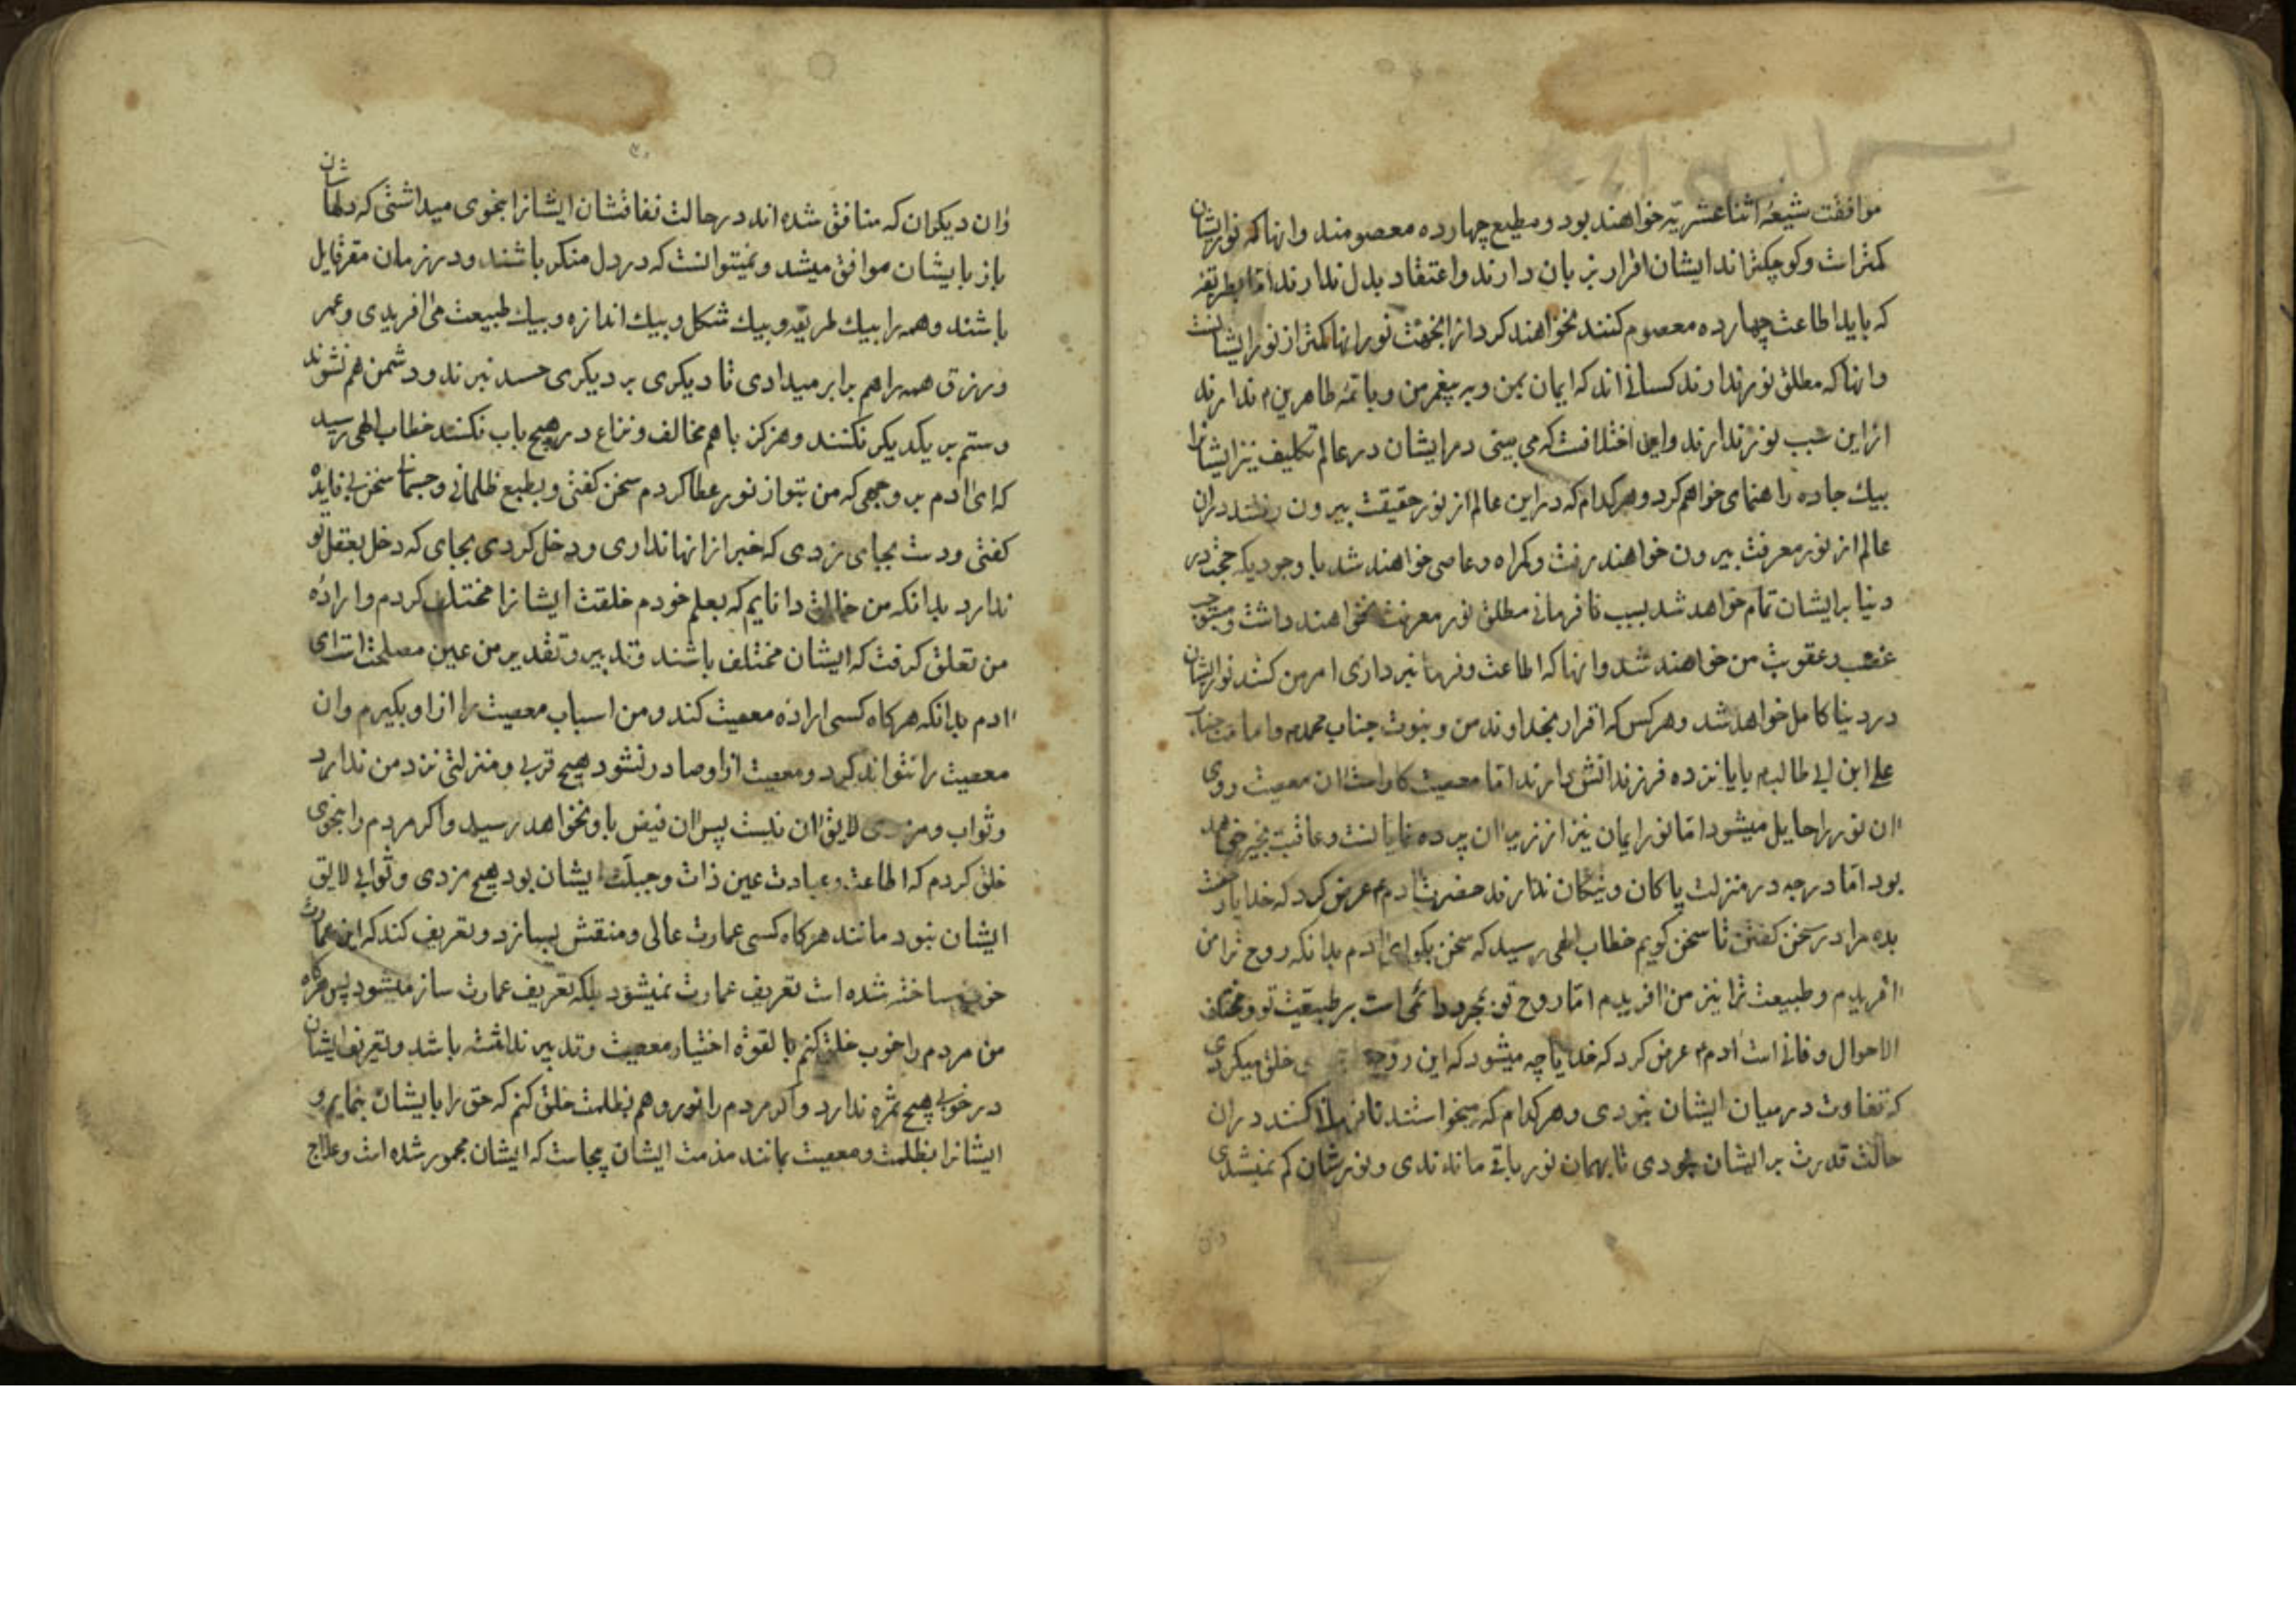 موافقت شیعهٔ اثناعشریه خواهند بود و مطیع چهارده معصومند و انها که نورایشان
کمتراست و کوچکتراند ایشان اقرار بزبان دارند و اعتقاد بدل ندارند اما بطریقهٔ
که باید اطاعت چهارده معصوم کنند نخواهند کرد از انجهت نور انها کمتر از نور ایشانست
و انها که مطلق نور ندارند کسانی اند که ایمان بمن و به پیغمبر من و بائمه طاهرین ندارند
از این سبب نور ندارند و این اختلافست که می بینی در ایشان در عالم تکلیف نیز ایشانرا
بیك جاده راهنمای خواهم کرد و هرکدام که در این عالم از نور حقیقت بیرون رفتند در ان
عالم از نور معرفت بیرون خواهند رفت و کمراه و عاصی خواهند شد با وجودیکه حجت در
دنیا برایشان تمام خواهد شد بسبب نافرمانی مطلق نور معرفت نخواهند داشت و مستوجب
غضب و عقوبت من خواهند شد و انها که اطاعت و فرمانبرداری امر من کنند نورایشان
در دنیا کامل خواهد شد و هرکس که اقرار بخداوند من و بنبوت جناب محمد و امامت جناب
علی ابن ابی طالب با یازده فرزندانش دارند اما معصیت کاراست ان معصیت روی
ان نور را حایل میشود اما نور ایمان نیز از زیر ان پرده نمایانست و عاقبت بخیر خواهد
بود اما درجه در منزلت پاکان و نیکان ندارند حضرت ادم عرض کرد که خدایا رخصت
بده مرا در سخن کفتن تا سخن کویم خطاب الهی رسید که سخن بکو ای ادم بدانکه روح ترا من
افریدم و طبیعت ترا نیز من افریدم اما روح تو مجرد است بر طبیعت تو و مختلف
الاحوال و فانی است ادم عرض کرد که خدایا چه میشود که این خلق میکردی
که تفاوت در میان ایشان نبودی و هرکدام که میخواستند نافرمانی کنند در ان
حالت قدرت بر ایشان نبودی تا بهمان نور باقی ماندندی و نورشان کم نمیشدی
وان
وان دیکران که منافق شده اند در حالت نفاقشان ایشانرا بنحوی میداشتی که دلهاشان
باز با ایشان موافق میشد و نمیتوانست که در دل منکر باشند و در زمان مقر قایل
باشند و همه را بیك طریقه و بیك شکل و بیك اندازه و بیك طبیعت می افریدی و عمر
و رزق همه را هم برابر میدادی تا دیکری بر دیکری حسد نبرند و دشمن هم نشوند
و ستم بر یکدیکر نکنند و هرکز با هم مخالف و نزاع در هیچ باب نکنند خطاب الهی رسید
که ای ادم بر وجهی که من بتو از نور عطا کردم سخن کفتی و بطبع ظلمانی و جسمانی سخن بیفایده
کفتی و دست بجای زدی که خبر از انها نداری و دخل کردی بجای که دخل بعقل تو
ندارد بدانکه من خالق دانایم که بعلم خودم خلقت ایشانرا مختلف کردم و ارادهٔ
من تعلق کرفت که ایشان مختلف باشند و تدبیر و تقدیر من عین مصلحت است ای
ادم بدانکه هرکاه کسی ارادهٔ معصیت کند و من اسباب معصیت را از او بکیرم وان
معصیت را نتواند کرد و معصیت از او صادر نشود هیچ قربی و منزلتی نزد من ندارد
و ثواب و مزدی لایق ان نیست پس ان فیض باو نخواهد رسید و اکر مردم را بنحوی
خلق کردم که اطاعت و عبادت عین ذات و جبلت ایشان بود هیچ مزدی و ثوابی لایق
ایشان نبود مانند هرکاه کسی عمارت عالی و منقش بسازد و تعریف کند که این عمارت
خوب ساخته شده است تعریف عمارت نمیشود بلکه تعریف عمارت ساز میشود پس هرکاه
من مردم را خوب خلق کنم بالقوه اختیار معصیت و تدبیر نداشته باشد و تعریف ایشان
در خوبی هیچ ثمره ندارد و اکر مردم را نور و هم بظلمت خلق کنم که حق را بایشان بنمایم و
ایشانرا بظلمت و معصیت بمانند مذمت ایشان بیجاست که ایشان مجبور شده است و علاج